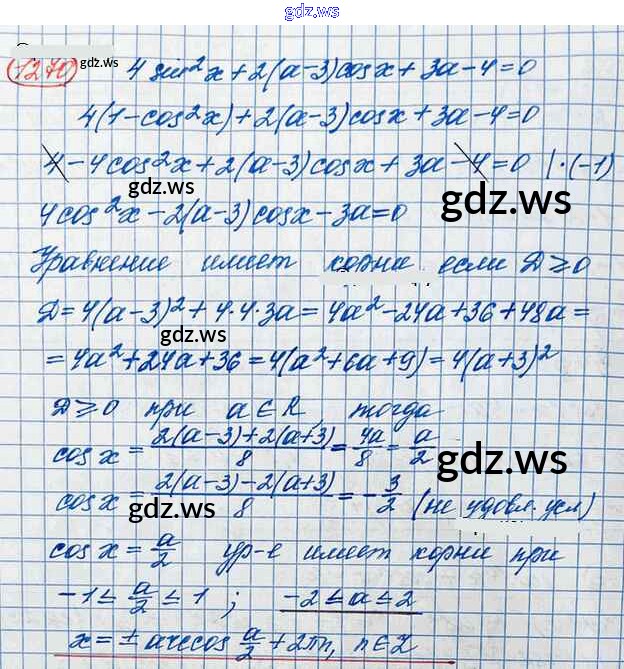 gdz.ws
1270 gdz.ws 4 sin²x + 2(a-3)cosx + 3a - 4 = 0
4(1-cos²x) + 2(a-3)cosx + 3a - 4 = 0
4 - 4cos²x + 2(a-3)cosx + 3a - 4 = 0 | ·(-1)
gdz.ws
gdz.ws
4cos²x - 2(a-3)cosx - 3a = 0
Уравнение имеет корни если D ≥ 0
D = 4(a-3)² + 4·4·3a = 4a² - 24a + 36 + 48a =
gdz.ws
= 4a² + 24a + 36 = 4(a² + 6a + 9) = 4(a+3)²
D ≥ 0 при a ∈ R, тогда
cos x = (2(a-3)+2(a+3))/8 = 4a/8 = a/2
gdz.ws
cos x = (2(a-3)-2(a+3))/8 = -3/2 (не удовл. усл)
gdz.ws
cos x = a/2 ур-е имеет корни при
-1 ≤ a/2 ≤ 1 ; -2 ≤ a ≤ 2
x = ± arccos a/2 + 2πn, n ∈ Z